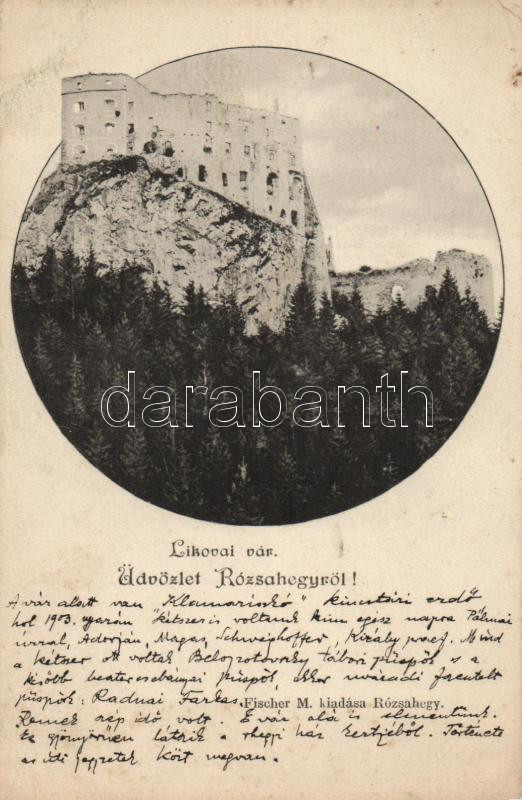 darabanth
Likovai vár.
Üdvözlet Rózsahegyről!
A vár alatt van "Klamarinkó" kincstári erdő
hol 1903. nyarán kétszer is voltunk kinn egész napra Pálmai
úrral, Adorján, Magas, Schweighoffer, Király prof. Mind
a kétszer ott voltak Belopotoczky tábori püspök s a
később besztercebányai püspök, akkor váczi
püspök: Radnai Farkas.
Fischer M. kiadása Rózsahegy.
Remek szép idő volt. E vár alá is elmentünk.
Ez gyönyörűen látszik a régi ház kertjéből. Története
az úti jegyzetek közt megvan.